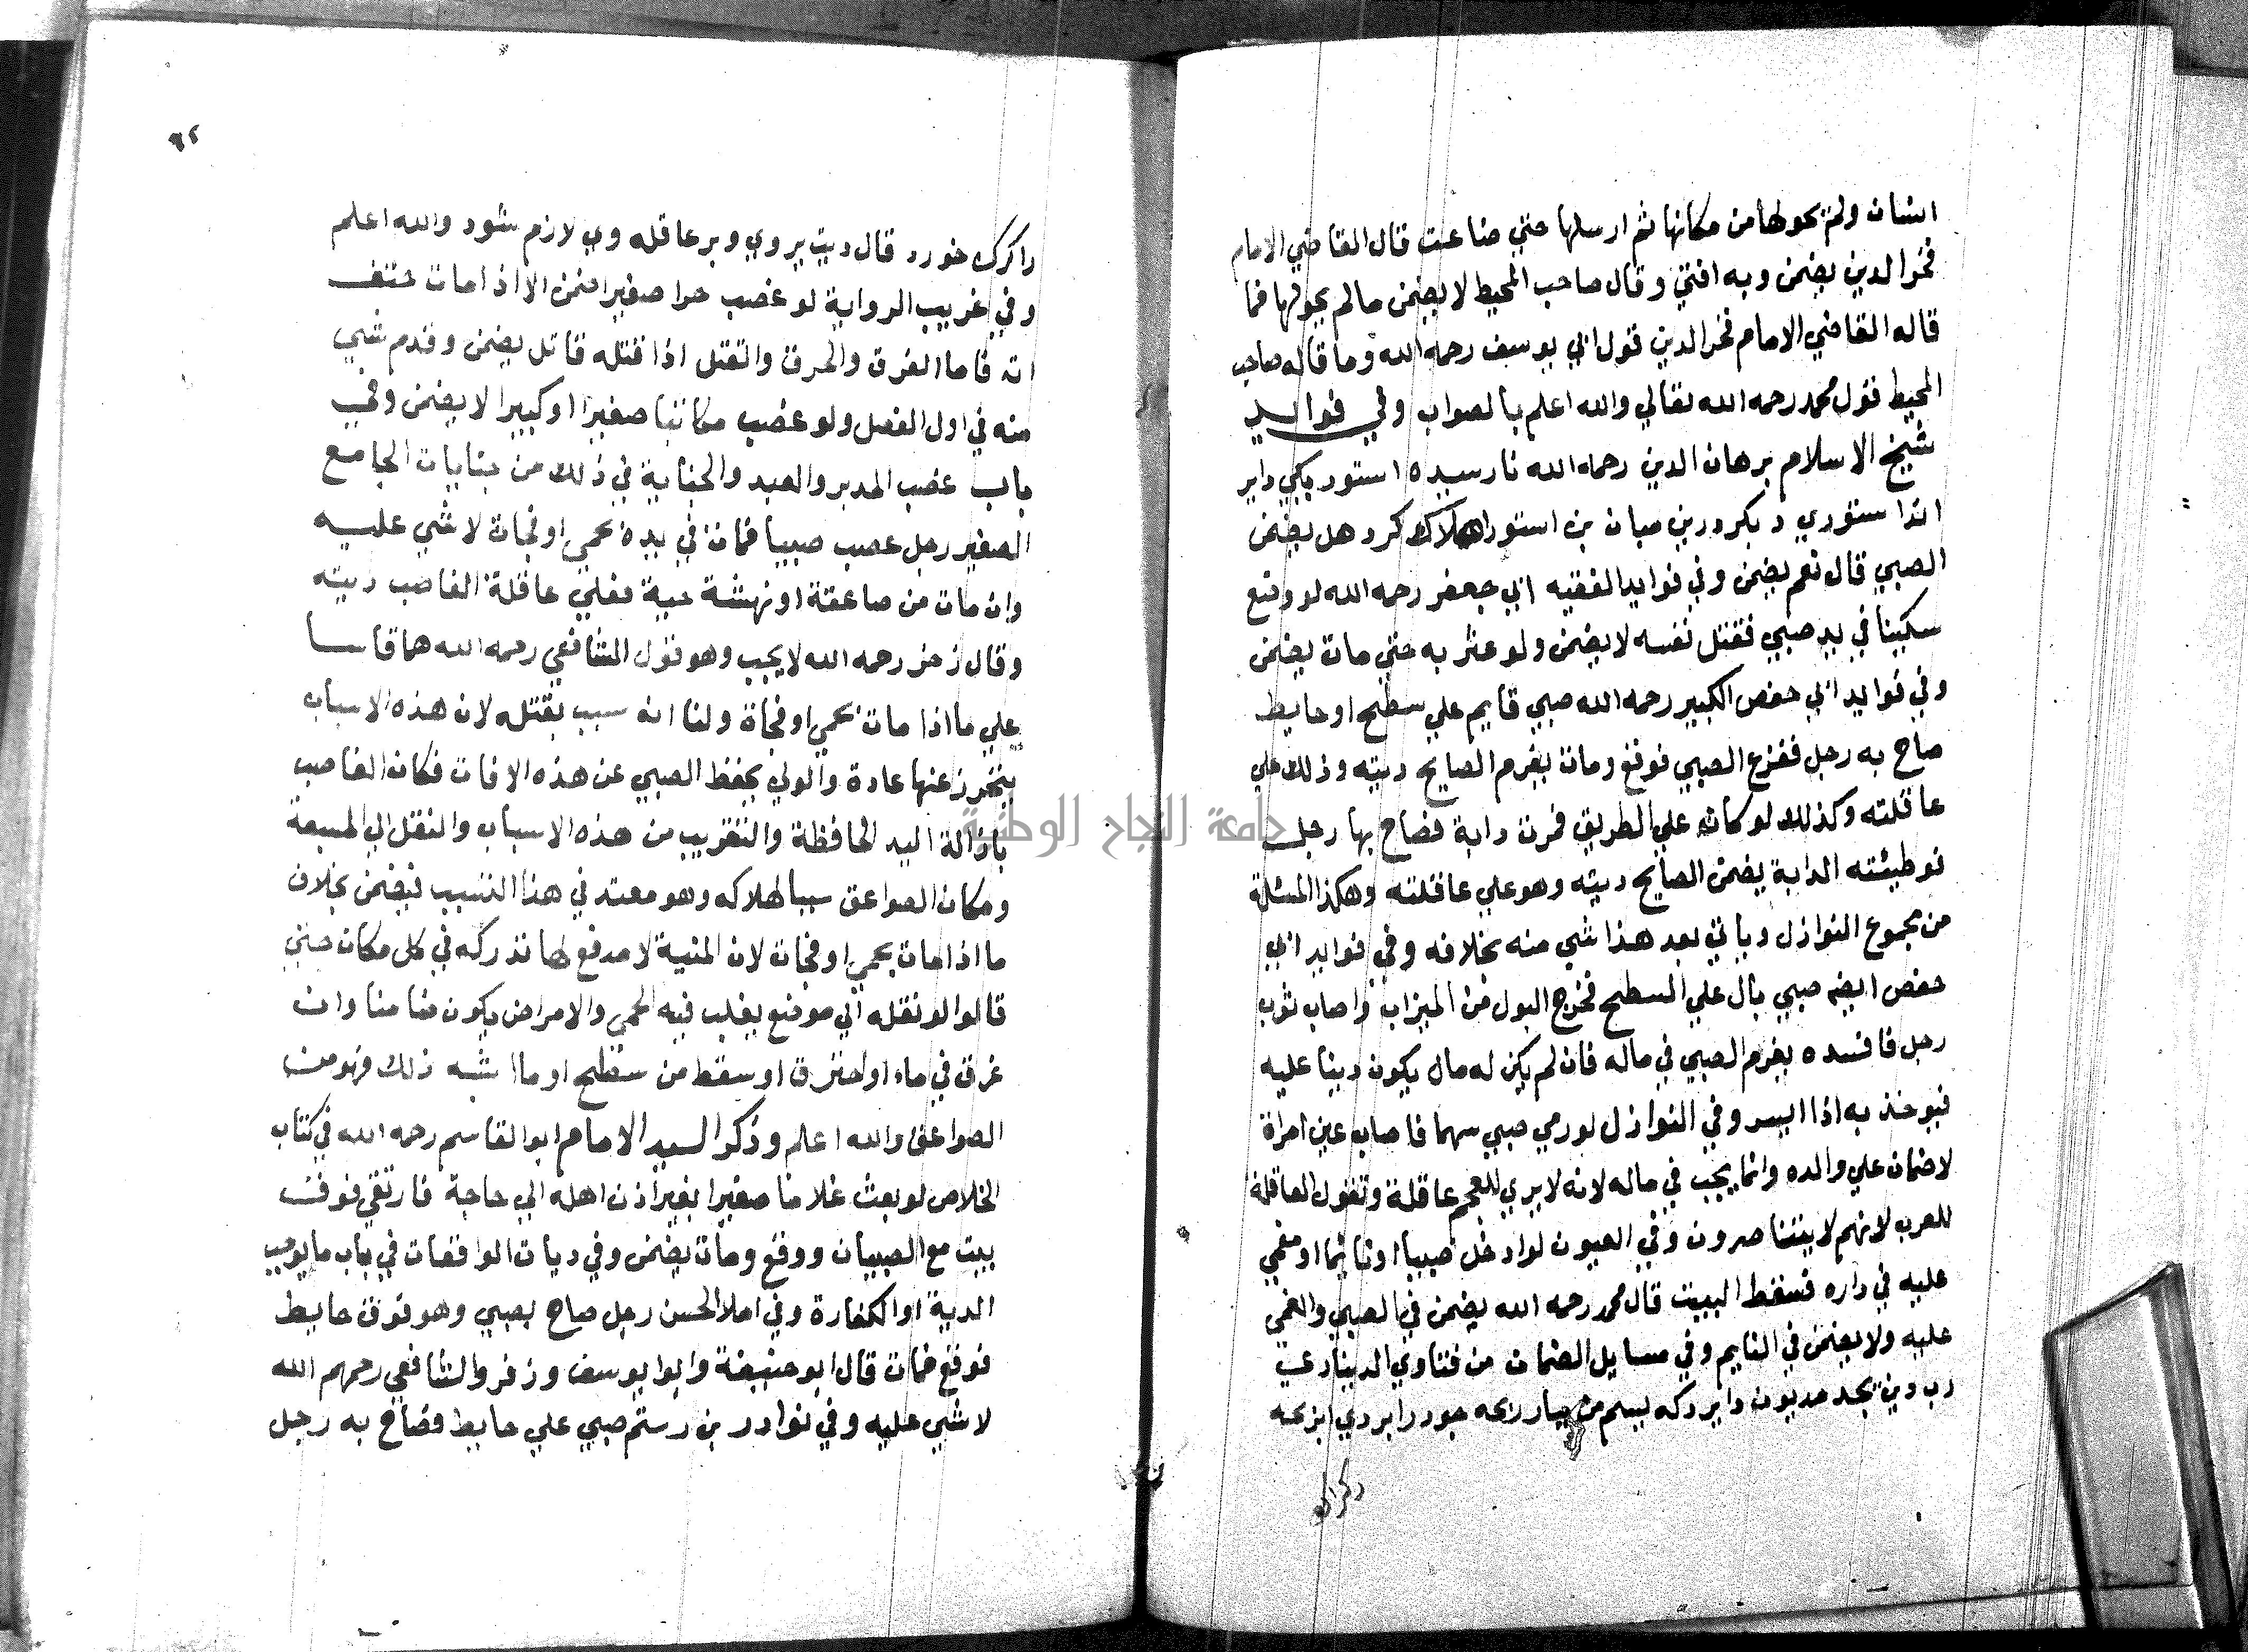 انسان ولم يحولها من مكانها ثم ارسلها حتي ضاعت قال القاضي الامام
فخر الدين يضمن وبه افتي وقال صاحب المحيط لا يضمن مالم يحولها فما
قاله القاضي الامام فخر الدين قول ابي يوسف رحمه الله وما قاله صاحب
المحيط قول محمد رحمه الله تعالي والله اعلم بالصواب وفي فوايد
شيخ الاسلام برهان الدين رحمه الله نارسيده استور يكي دابر
استوري ديكر درين ميان بن استور هلاك كرد هل يضمن
الصبي قال نعم يضمن وفي فوايد الفقيه ابي جعفر رحمه الله لو وضع
سكينا في يد صبي فقتل نفسه لا يضمن ولو عثر به حتي مات يضمن
وفي فوايد ابي حفص الكبير رحمه الله صبي قايم علي سطح او حايط
صاح به رجل ففزع الصبي فوقع ومات يغرم الصايح ديته وذلك علي
عاقلته وكذلك لو كان علي الطريق فمرت دابة فصاح بها رجل
فوطيئته الدابة يضمن الصايح ديته وهو علي عاقلته وهكذا المسئلة
من مجموع النوازل وياتي بعد هذا شي منه بخلافه وفي فوايد ابي
حفص ايضه صبي بال علي السطح فخرج البول من الميزاب واصاب ثوب
رجل فافسده يغرم الصبي في ماله فان لم يكن له مال يكون دينا عليه
فيوخذ به اذا ايسر وفي النوازل لو رمي صبي سهما فاصاب عين امراة
لا ضمان علي والده وانما يجب في ماله لانه لا يري للعجم عاقلة وتقول العاقلة
للعرب لانهم لا يتناصرون وفي العيون لو ادخل صبيا او نائما او مغمي
عليه في داره فسقط البيت قال محمد رحمه الله يضمن في الصبي والمغمي
عليه ولا يضمن في النايم وفي مسايل الضمان من فتاوي الديناري
رب دين بجد مديون دابر دكه ببسم من
دكرك
٦٢
راكرك خورد قال ديت بروي وبر عاقله وي لازم شود والله اعلم
وفي غريب الرواية لو غصب حرا صغيرا ضمن الا اذا مات حتف
انه فاما الغرق والحرق والقتل اذا قتله قاتل يضمن وقدم شي
منه في اول الفصل ولو غصب مكاتبا صغيرا او كبيرا لا يضمن وفي
باب غصب المدبر والعبد والجناية في ذلك من جنايات الجامع
الصغير رجل غصب صبيا فمات في يده بحمي او فجات لا شي عليه
وان مات من صاعقة او نهشة حية فعلي عاقلة الغاصب ديته
وقال زفر رحمه الله لا يجب وهو قول الشافعي رحمه الله هما قاسا
علي ما اذا مات بحمي او فجاة ولنا انه سبب بقتله لان هذه الاسباب
يتحرز عنها عادة والولي يحفظ الصبي عن هذه الافات فكان الغاصب
بازالة اليد الحافظة والتقريب من هذه الاسباب والنقل الي المسبعة
ومكان الصواعق سببا لهلاكه وهو معتد في هذا التسبب فيضمن بخلاف
ما اذا مات بحمي او فجات لان المنية لا مدفع لها تدركه في كل مكان حتي
قالوا لو نقله الي موضع يغلب فيه الحمي والامراض يكون ضامنا وان
غرق في ماء او احترق او سقط من سطح او ما اشبه ذلك فهو من
الصواعق والله اعلم وذكر السيد الامام ابو القاسم رحمه الله في كتاب
الخلاص لو بعث غلاما صغيرا بغير اذن اهله الي حاجة فارتقي فوق
بيت مع الصبيان ووقع ومات يضمن وفي ديات الواقعات في باب ما يوجب
الدية او الكفارة وفي املا الحسن رجل صاح بصبي وهو فوق حايط
فوقع فمات قال ابو حنيفة وابو يوسف وزفر والشافعي رحمهم الله
لا شي عليه وفي نوادر بن رستم صبي علي حايط فصاح به رجل
جامعة النجاح الوطنية